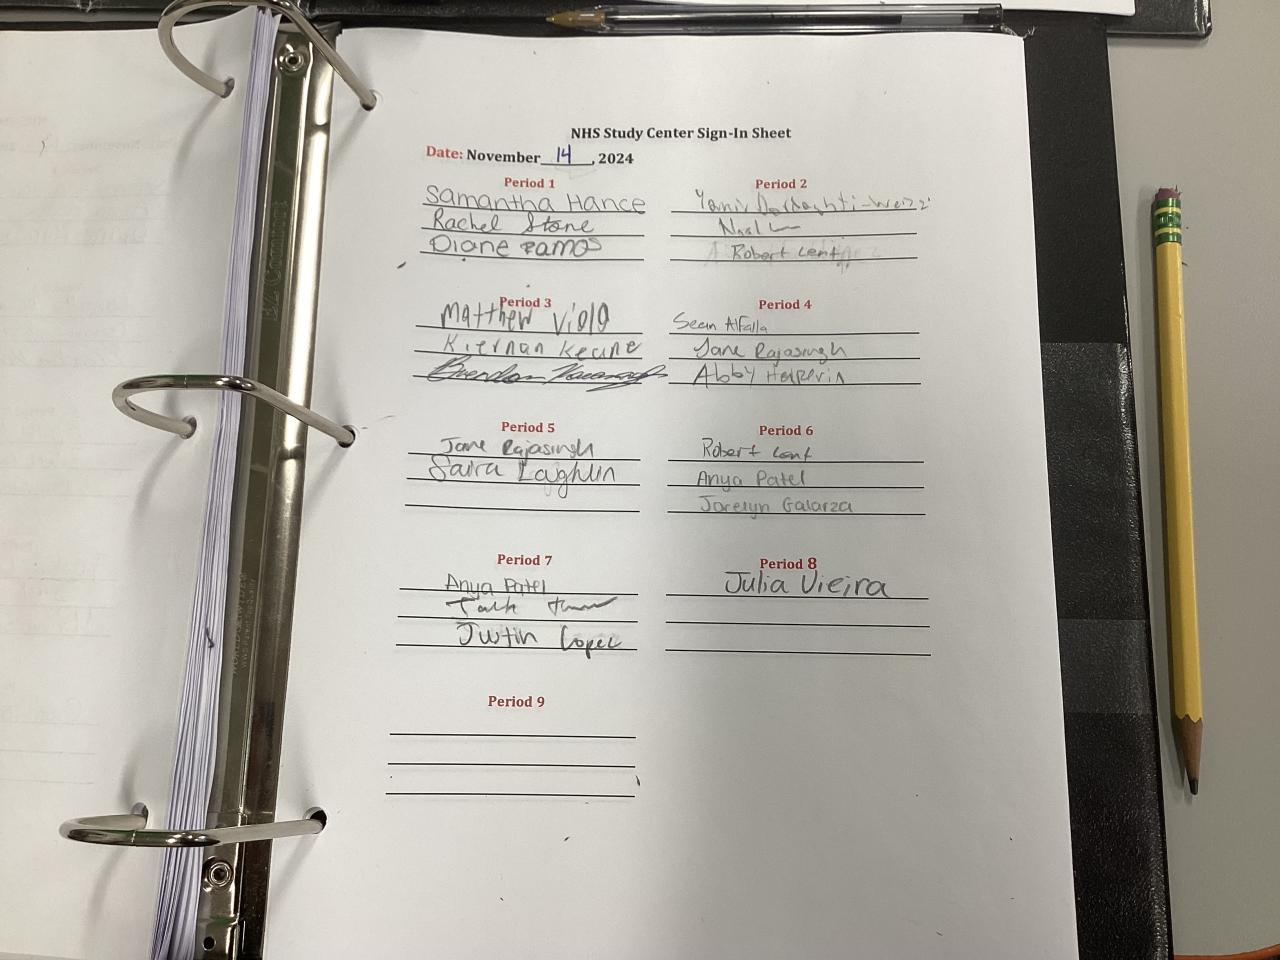 NHS Study Center Sign-In Sheet
Date: November 14, 2024
Period 1
Samantha Hance
Rachel Stone
Diane Ramos
Period 2
Yaniv
Robert Lent
Period 3
Matthew Viola
Kiernan Keane
Brendan Kavanagh
Period 4
Sean Alfalla
Jane Rajasingh
Abby Halperin
Period 5
Jane Rajasingh
Saira Laghlin
Period 6
Robert Lent
Anya Patel
Jocelyn Galarza
Period 7
Anya Patel
Justin Lopez
Period 8
Julia Vieira
Period 9